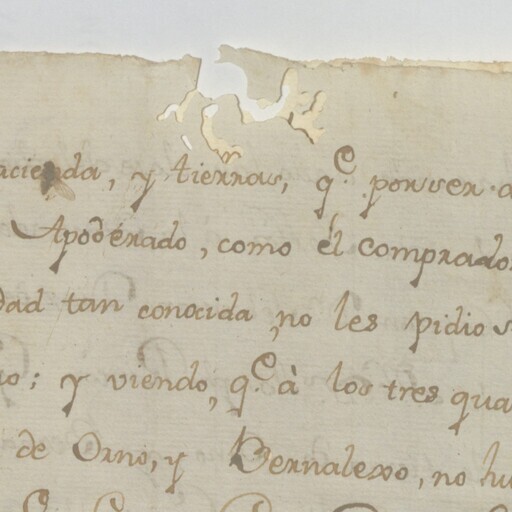 acienda, y tierras, q.e por ser
Apoderado, como el comprador
dad tan conocida, no les pidio
no; y viendo, q.e à los tres qua
de Orno, y Bernalexo, no hu